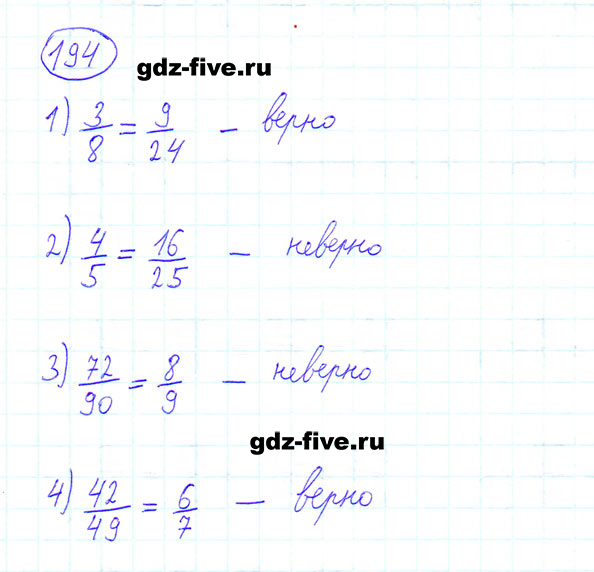 194
gdz-five.ru
1) 3/8 = 9/24 – верно
2) 4/5 = 16/25 – неверно
3) 72/90 = 8/9 – неверно
gdz-five.ru
4) 42/49 = 6/7 – верно